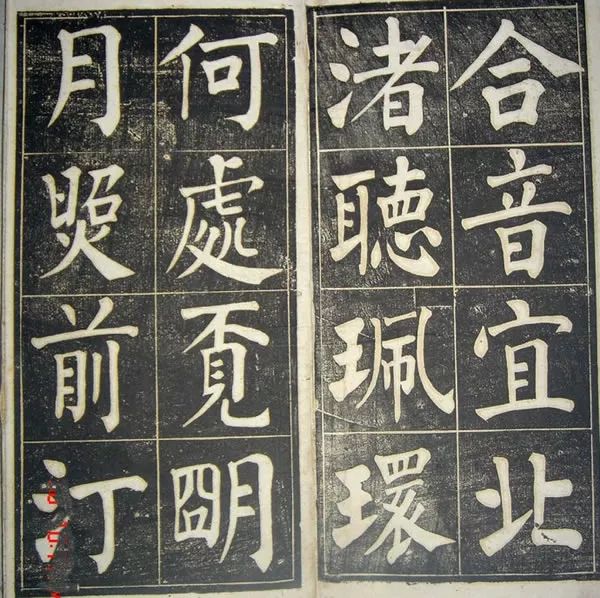 合音宜北
渚聽珮環
何處覔朙
月照前汀